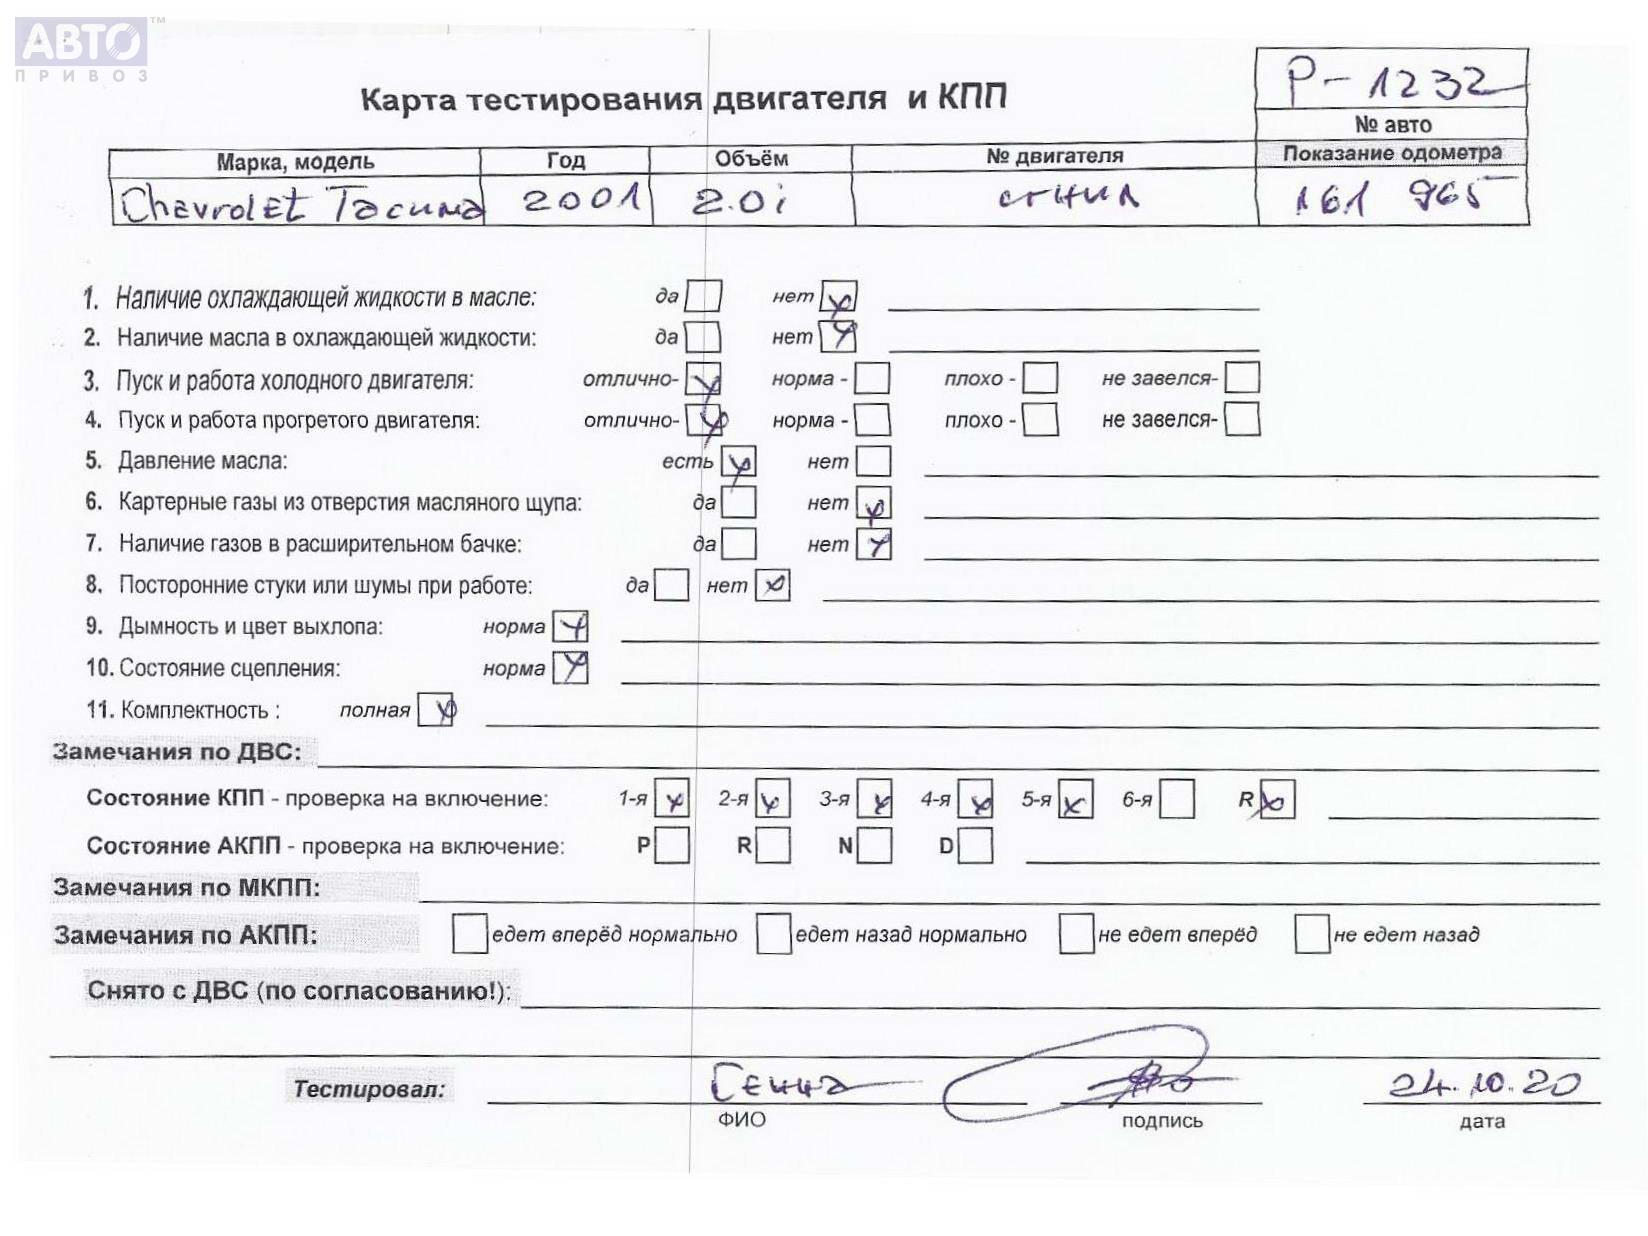 АВТО™
ПРИВОЗ
Карта тестирования двигателя и КПП
P-1232
№ авто
Марка, модель Год Объём № двигателя Показание одометра
Chevrolet Такума 2001 2.0i сгнил 161 965
1. Наличие охлаждающей жидкости в масле: да нет
2. Наличие масла в охлаждающей жидкости: да нет
3. Пуск и работа холодного двигателя: отлично- норма - плохо - не завелся-
4. Пуск и работа прогретого двигателя: отлично- норма - плохо - не завелся-
5. Давление масла: есть нет
6. Картерные газы из отверстия масляного щупа: да нет
7. Наличие газов в расширительном бачке: да нет
8. Посторонние стуки или шумы при работе: да нет
9. Дымность и цвет выхлопа: норма
10. Состояние сцепления: норма
11. Комплектность : полная
Замечания по ДВС:
Состояние КПП - проверка на включение: 1-я 2-я 3-я 4-я 5-я 6-я R
Состояние АКПП - проверка на включение: P R N D
Замечания по МКПП:
Замечания по АКПП: едет вперёд нормально едет назад нормально не едет вперёд не едет назад
Снято с ДВС (по согласованию!):
Тестировал: 24.10.20
ФИО подпись дата